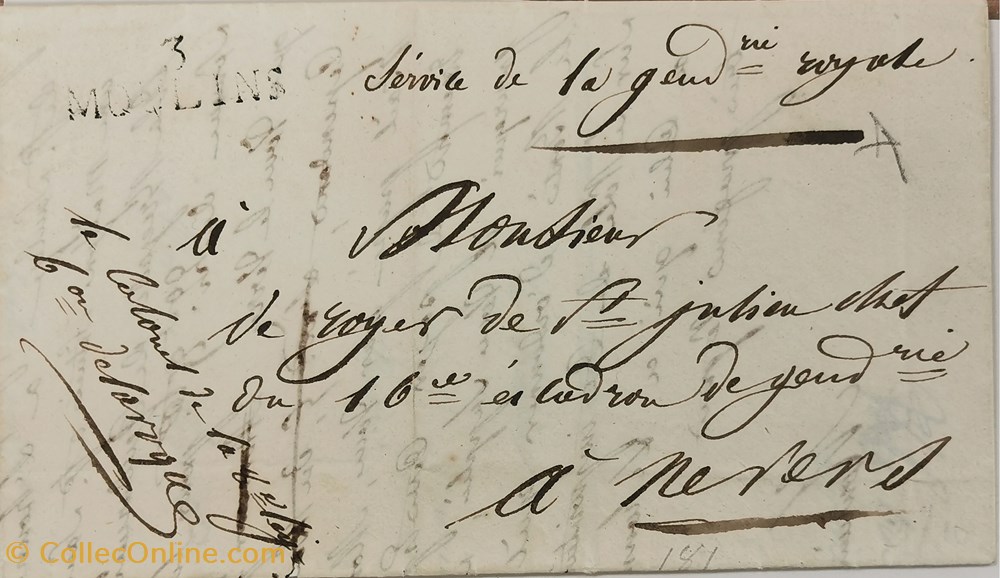 3
MOULINS
Sérvice de la gendrie royale.
A
à Monsieur
de royer de St julien chef
du 16ee éscadron de gendrie
à Nevers
le Colonel de la
Bon delaroque
181
© CollecOnline.com